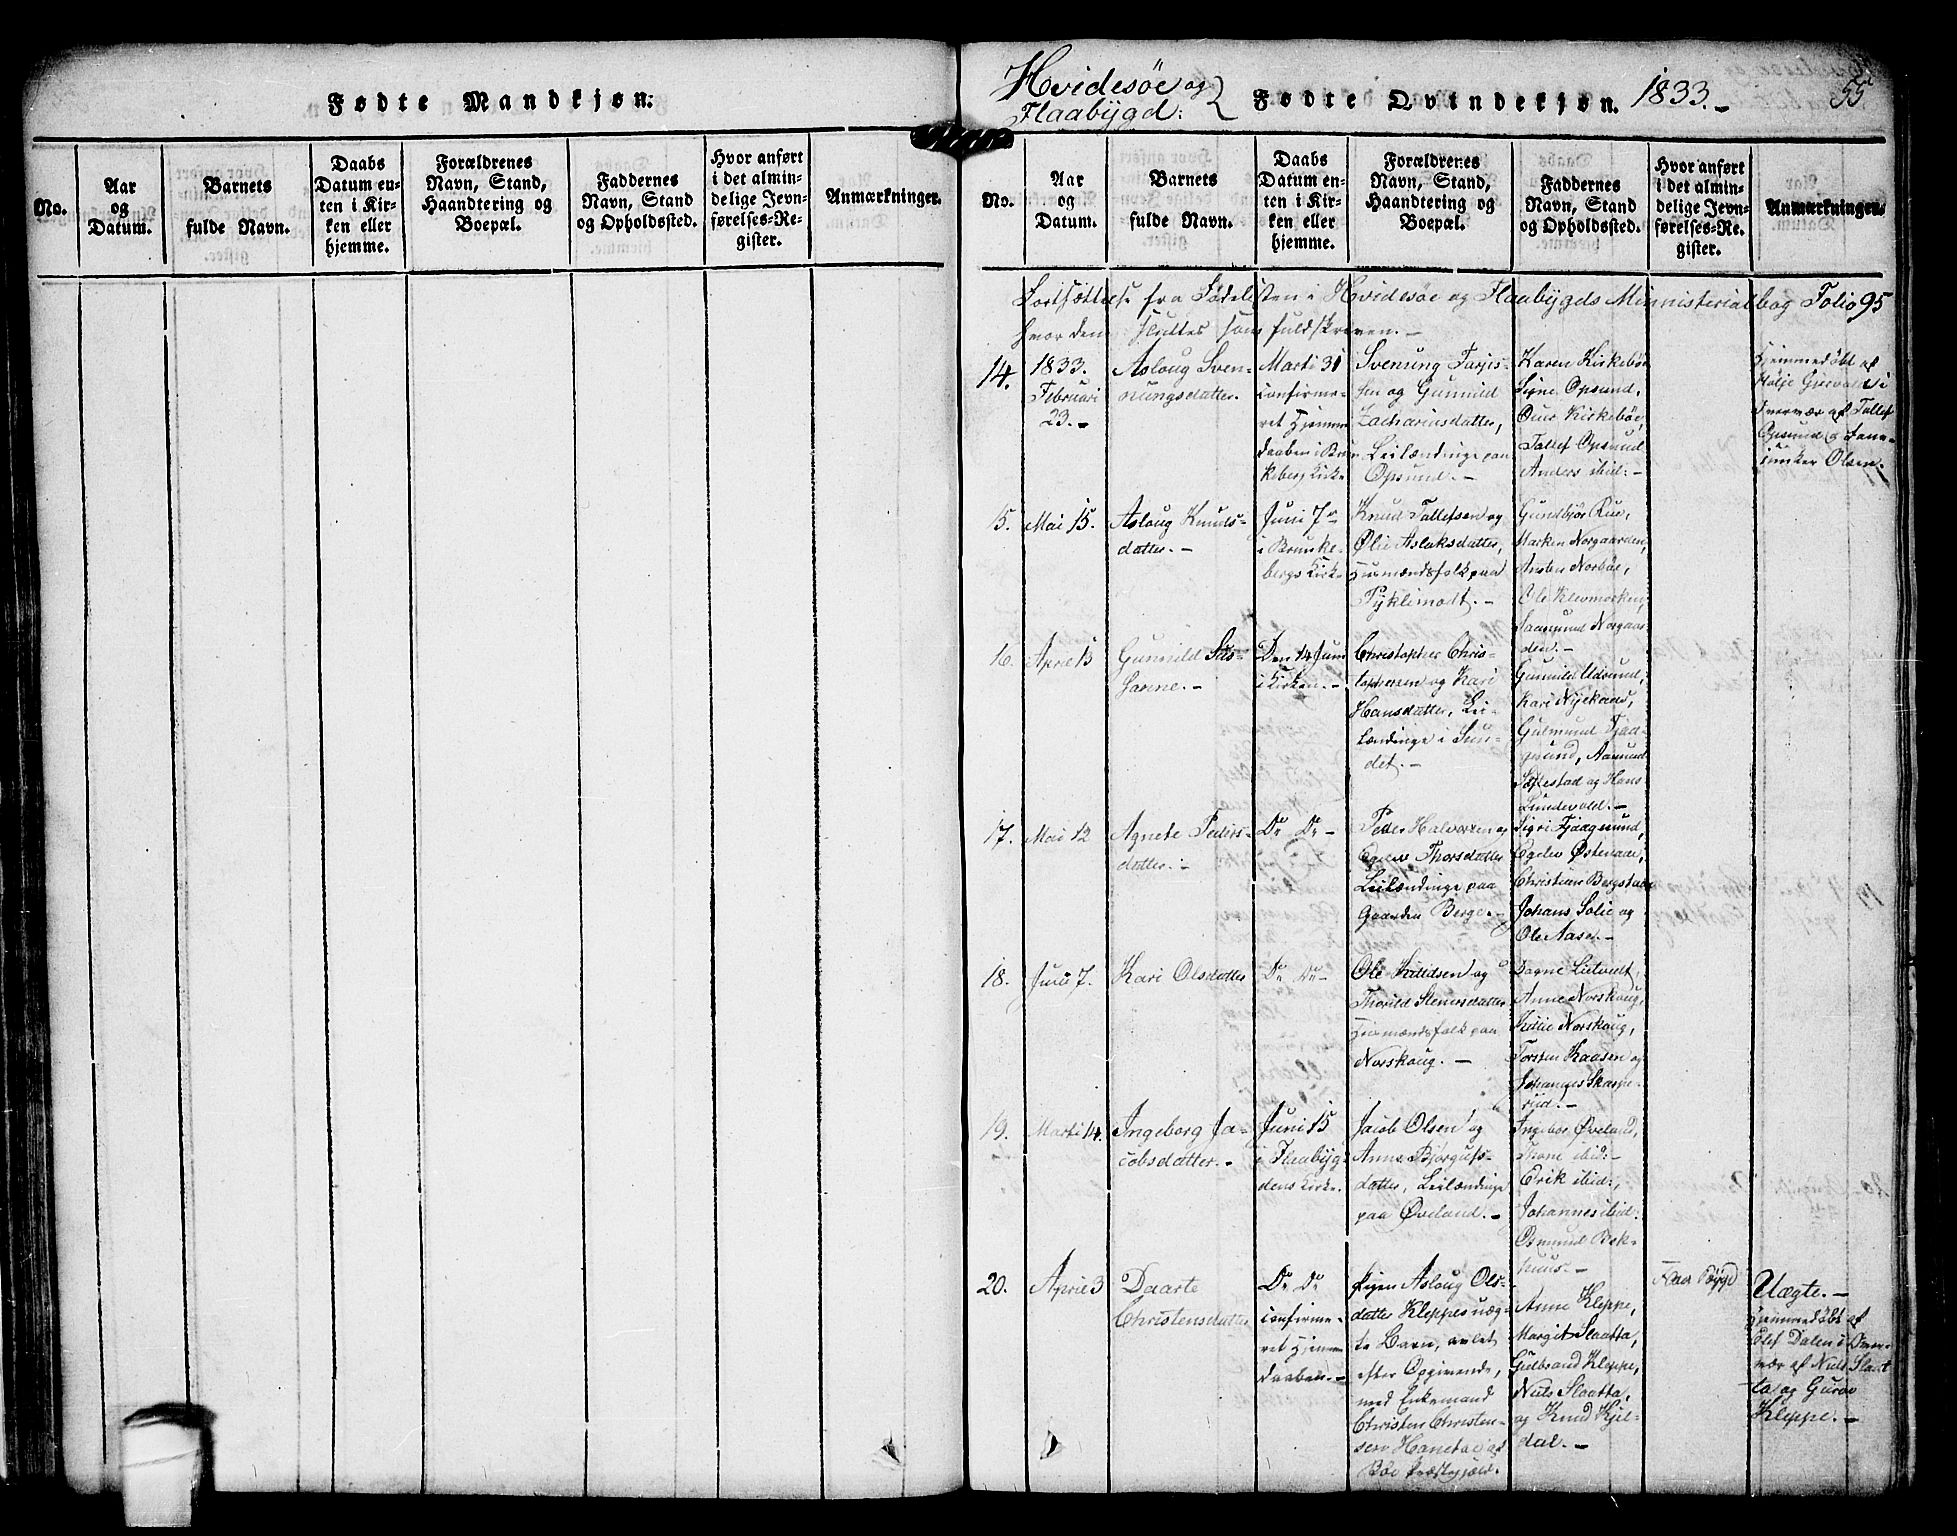 Fødte Mandkjøn.
No.
Aar
og
Datum.
Barnets
fulde Navn.
Daabs
Datum en-
ten i Kir-
ken eller
hjemme.
Forældrenes
Navn, Stand,
Haandtering og
Boepæl.
Faddernes
Navn, Stand
og Opholdssted.
Hvor anført
i det almin-
delige Jevn-
førelses-Re-
gister.
Anmærkninger.
Hvidesøe og
Flaabygd:
Fødte Qvindekjøn. 1833.-
55
No.
Aar
og
Datum.
Barnets
fulde Navn.
Daabs
Datum en-
ten i Kir-
ken eller
hjemme.
Forældrenes
Navn, Stand,
Haandtering og
Boepæl.
Faddernes
Navn, Stand
og Opholdssted.
Hvor anført
i det almin-
delige Jevn-
førelses-Re-
gister.
Anmærkninger.
Fortsættelse fra Fødelisten i Hvidesøe og Flaabygds Ministerialbog Folio 95
hvor den sluttes som fuldskreven.-
14.
1833.
Februari
23.-
Asloug Sven-
ungsdatter.
Marti 31
confirme-
ret Hjemme
daaben i Brun-
keberg Kirke
Svenung Tarjis-
sen og Gunnild
Zachariasdatter,
Leilændinge paa
Opsund.-
Karen Kirkebøe
Signe Opsund,
Kirkebøe,
Tallef Opsund
Anders ibid:-
Hjemmedøbt af
i
Overvær af Tallef
Opsund og
Olsen.
15.
Mai 15.
Asloug Knuds-
datter.-
Juni 7de
i Brunke-
bergs Kirke
Knud Tallefsen og
Ølie Aslaksdatter,
Huusmændsfolk paa
Tyklimodt.-
Gundbjør Rue,
Marken Norgaarden,
Norbøe,
Ole Klevmoeken,
Saamund Norgaar-
den.-
16.
April 13
Gunnild Su-
sanne.-
Den 14 Juni
i Kirken.-
Christopher Chris-
tophersen og Kari
Hansdatter, Lei-
lændinge i Sun-
det.-
Gunnild Udsund,
Kari Nykaas,
Gulmund Fjaag-
sund, Aamund
Søftestad og Hans
Lundevold.-
17.
Mai 12
Agnete Peders-
datter.-
Do Do-
Peder Halvorsen og
Egelev Thorsdatter
Leilændinge paa
Gaarden Berge.-
Sigri Fjaagsund,
Egelev Østenaae,
Christian Bergstue
Johans Solie og
Ole Aase.-
18.
Juni 7.
Kari Olsdatter
Do Do-
Ole Kittilsen og
Thorild Stenersdatter
Huusmændsfolk paa
Norskoug.-
Dagne Lietvedt,
Anne Norskoug,
Kittil Norskoug,
Torsten Haasen og
Johannes Skarpe-
rud.-
19.
Marti 14.
Ingeborg Ja-
cobsdatter.-
Juni 15
i Flaabyg-
dens Kirke.
Jacob Olsen og
Anne Bjørgufs-
datter, Leilændinge
paa Øveland.-
Ingebor Øveland,
Thone ibid:-
Erik ibid:
Johannes ibid:
Osmund Bek-
huus.-
20.
April 3
Daarte
Christensdatter
Do Do
confirme-
ret Hjemme
daaben.-
Pigen Asloug Ols-
datter Kleppes uæg-
te Barn, avlet
efter Opgivende,
med Enkemand
Christen Christen-
sen af
Bøe Præstegjæld.
Anne Kleppe,
Margit Slaatta,
Gulbrand Kleppe,
Niels Slaatta,
og Knud Kjel-
dal.-
Flaa Bygd
Uægte.-
Hjemmedøbt af
Elef Dalen i Over-
vær af Niels Slaat
ta og Guroe
Kleppe.-